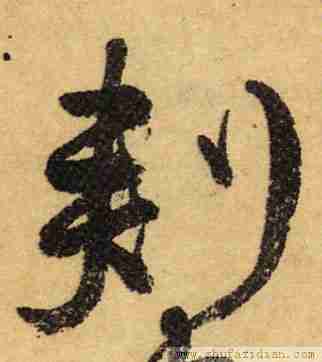 刺
www.shufazidian.com